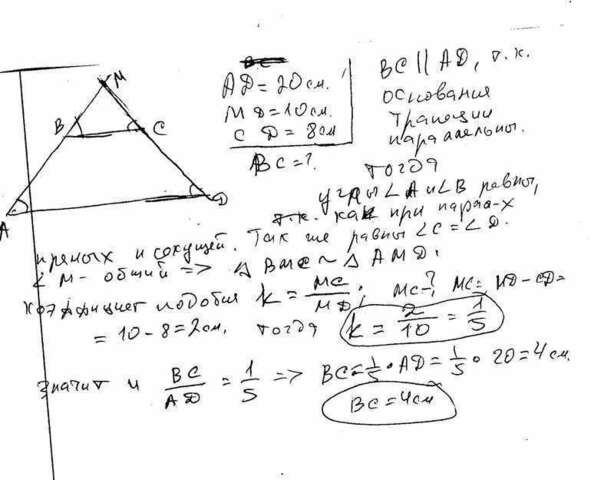 M
B
C
A
D
AD = 20 см.
MD = 10 см.
CD = 8 см
BC = ?
BC || AD, т.к.
основания
трапеции
параллельны.
тогда
углы ∠A и ∠B равны,
т.к. как при парал-х
прямых и секущей. Так же равны ∠C = ∠D.
∠M - общий => △BMC ~ △AMD.
коэффициент подобия k = MC/MD; MC-? MC = MD - CD =
= 10 - 8 = 2 см, тогда k = 2/10 = 1/5
значит и BC/AD = 1/5 => BC = 1/5 • AD = 1/5 • 20 = 4 см.
BC = 4 см